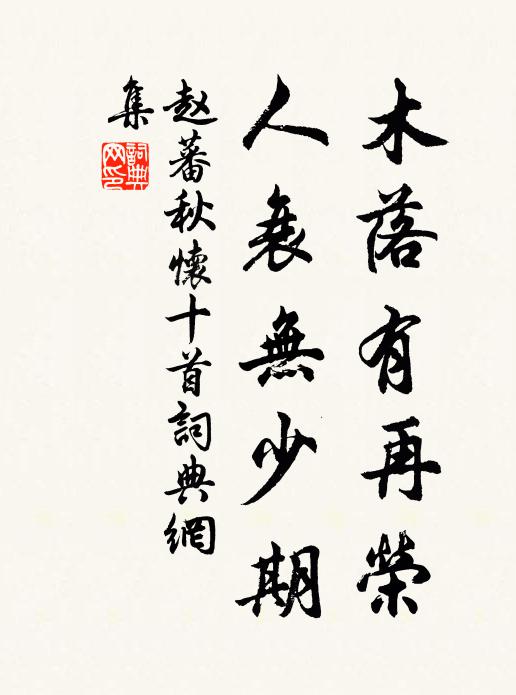 木落有再榮
人衰無少期
赵蕃秋懷十首詞典網
集
詞典
网印